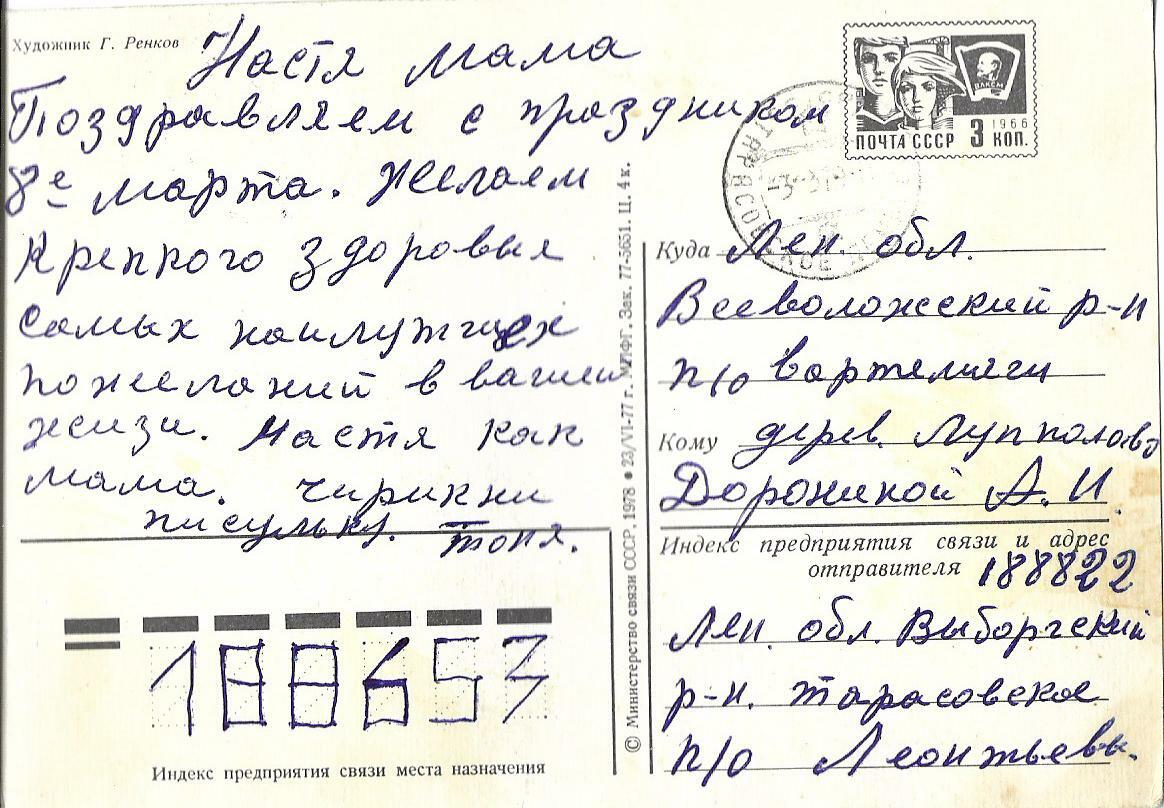 Художник Г. Ренков
Настя мама
Поздравляем с праздником
8е марта. Желаем
крепкого здоровья
самых наилутших
пожеланий в вашей
жизи. Настя как
мама. чирикни
писульку. Тоня.
ПОЧТА СССР 3 КОП.
1966
ВЛКСМ
Куда Лен. обл.
Всеволожский р-н
п/о Вартемяги
Кому дерев. Лупполово
Дорониной А. И.
Индекс предприятия связи и адрес
отправителя 188822
Лен. обл. Выборгский
р-н. Тарасовское
п/о Леонтьевы.
© Министерство связи СССР, 1978 • 23/VI-77 г. МПФГ. Зак. 77-5651. Ц. 4 к.
188653
Индекс предприятия связи места назначения